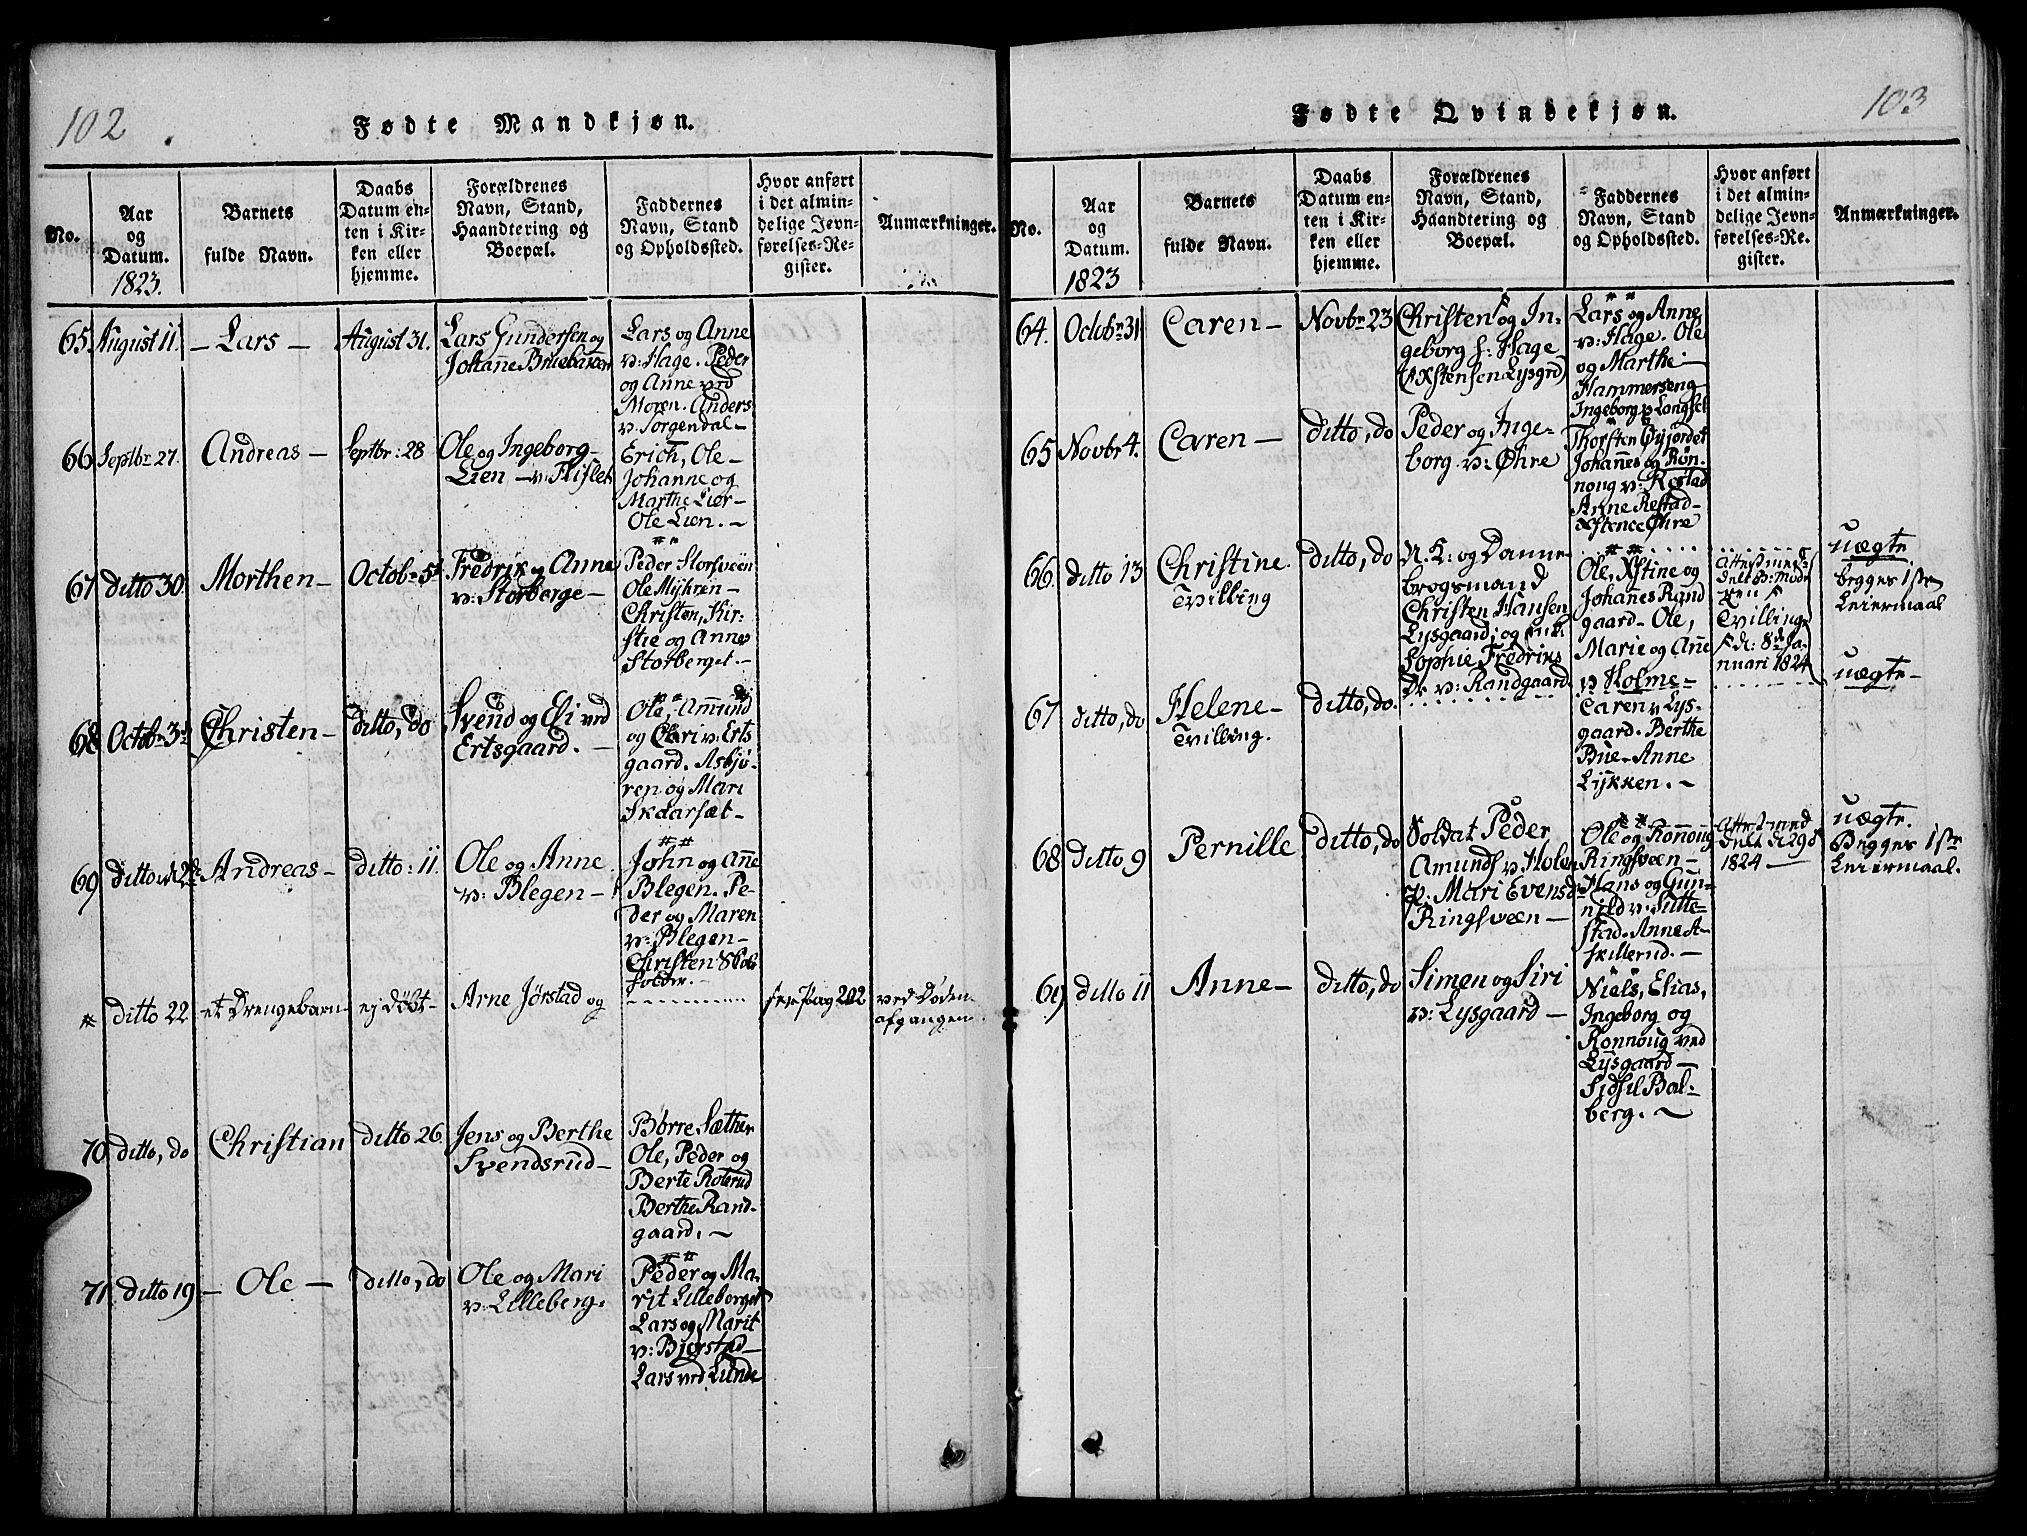 102
Fødte Mandkjøn.
No.
Aar
og
Datum.
1823.
Barnets
fulde Navn.
Daabs
Datum en-
ten i Kir-
ken eller
hjemme.
Forældrenes
Navn, Stand,
Haandtering og
Boepæl.
Faddernes
Navn, Stand
og Opholdssted.
Hvor anført
i det almin-
delige Jevn-
førelses-Re-
gister.
Anmærkninger.
65
August 11.
- Lars -
August 31.
Lars Gundersen og
Johanne
Lars og Anne
v: Hage. Peder
og Anne ved
Moren. Anders
v: Sorgendal -
66
Septbr 27.
Andreas -
Septbr: 28
Ole og Ingeborg -
Lien - v:
Erich, Ole -
Johanne og
Marthe Lier -
Ole Lien. -
67
ditto 30.
Morthen -
Octobr 5t
Fredrix og Anne
v: Storberge -
Peder Storsveen
Ole Myhren -
Christen, Kir-
stie og Anne
Storberget. -
68
Octobr 3d
Christen -
ditto, do
Svend og Eli ved
Ertsgaard. -
Ole, Amund
og Kari v: Erts
gaard. Asbjø-
ren og Mari
Skaarsæt -
69
ditto
Andreas -
ditto: 11.
Ole og Anne
v: Blegen -
John og Anne
Blegen. Pe-
der og Maren
v: Blegen -
Christen
*
ditto 22
et Drengebarn -
ej Døbt -
Arne Jørstad og
pag 202
ved Døden
afgangen.
70
ditto, do
Christian
ditto 26
Jens og Berthe
Svendsrud -
Børre Sæther
Ole, Peder og
Berte Roterud
Berthe Rand-
gaard. -
71
ditto 19
- Ole -
ditto, do
Ole og Mari
v: Lilleberg.
Peder og Ma-
rit Lilleberget
Lars og Marit
v: Bjørstad -
Lars ved Lunde
103
Fødte Qvindekjøn.
No.
Aar
og
Datum.
1823
Barnets
fulde Navn.
Daabs
Datum en-
ten i Kir-
ken eller
hjemme.
Forældrenes
Navn, Stand,
Haandtering og
Boepæl.
Faddernes
Navn, Stand
og Opholdssted.
Hvor anført
i det almin-
delige Jevn-
førelses-Re-
gister.
Anmærkninger.
64.
Octobr 31
Caren -
Novbr 23
Christen og In-
geborg f: Hage
(Xstensen Lysgrd)
Lars og Anne
v: Hage. Ole
og Marthe -
Hammerseng
Ingeborg v Langset
65
Novbr 4.
Caren -
ditto, do
Peder og Inge-
borg v: Øhre
Thorsten
Johannes og Røn-
noug v: Røstad
Anne Røstad -
Xstence Øhre
66.
ditto 13
Christine
Tvilling
ditto, do
N. K: og Danne-
brogsmand
Christen Hansen
Lysgaard, og
Sophie Fredriks
Dr v: Randgaard.
Ole, Xstine og
Johanes Rand
gaard - Ole,
Marie og Anne
v Holme -
Caren v Lys-
gaard. Berthe
Bue - Anne
Lykken. -
Attest med-
delt
Tvilling
d: 8de Ja-
nuari 1824
uægte
begges 1ste
Leiermaal
67
ditto, do
Helene -
Tvilling.
ditto, do.
uægte -
68
ditto 9
Pernille
ditto, do
Soldat Peder
Amunds v: Holen
p. Mari Evensd:
Ringsveen -
Ole og Ronnoug
Ringsveen -
Hans og Gun-
nild v: Sutte-
stad. Anne A-
skillerud. -
Attest med
delt d 29d
1824 -
uægte.
Begges 1ste
Leiermaal.
69
ditto 11
Anne -
ditto, do
Simen og Siri
v: Lysgaard -
Niels, Elias,
Ingeborg og
Ronnoug ved
Lysgaard -
Sidsil Bal-
berg. -